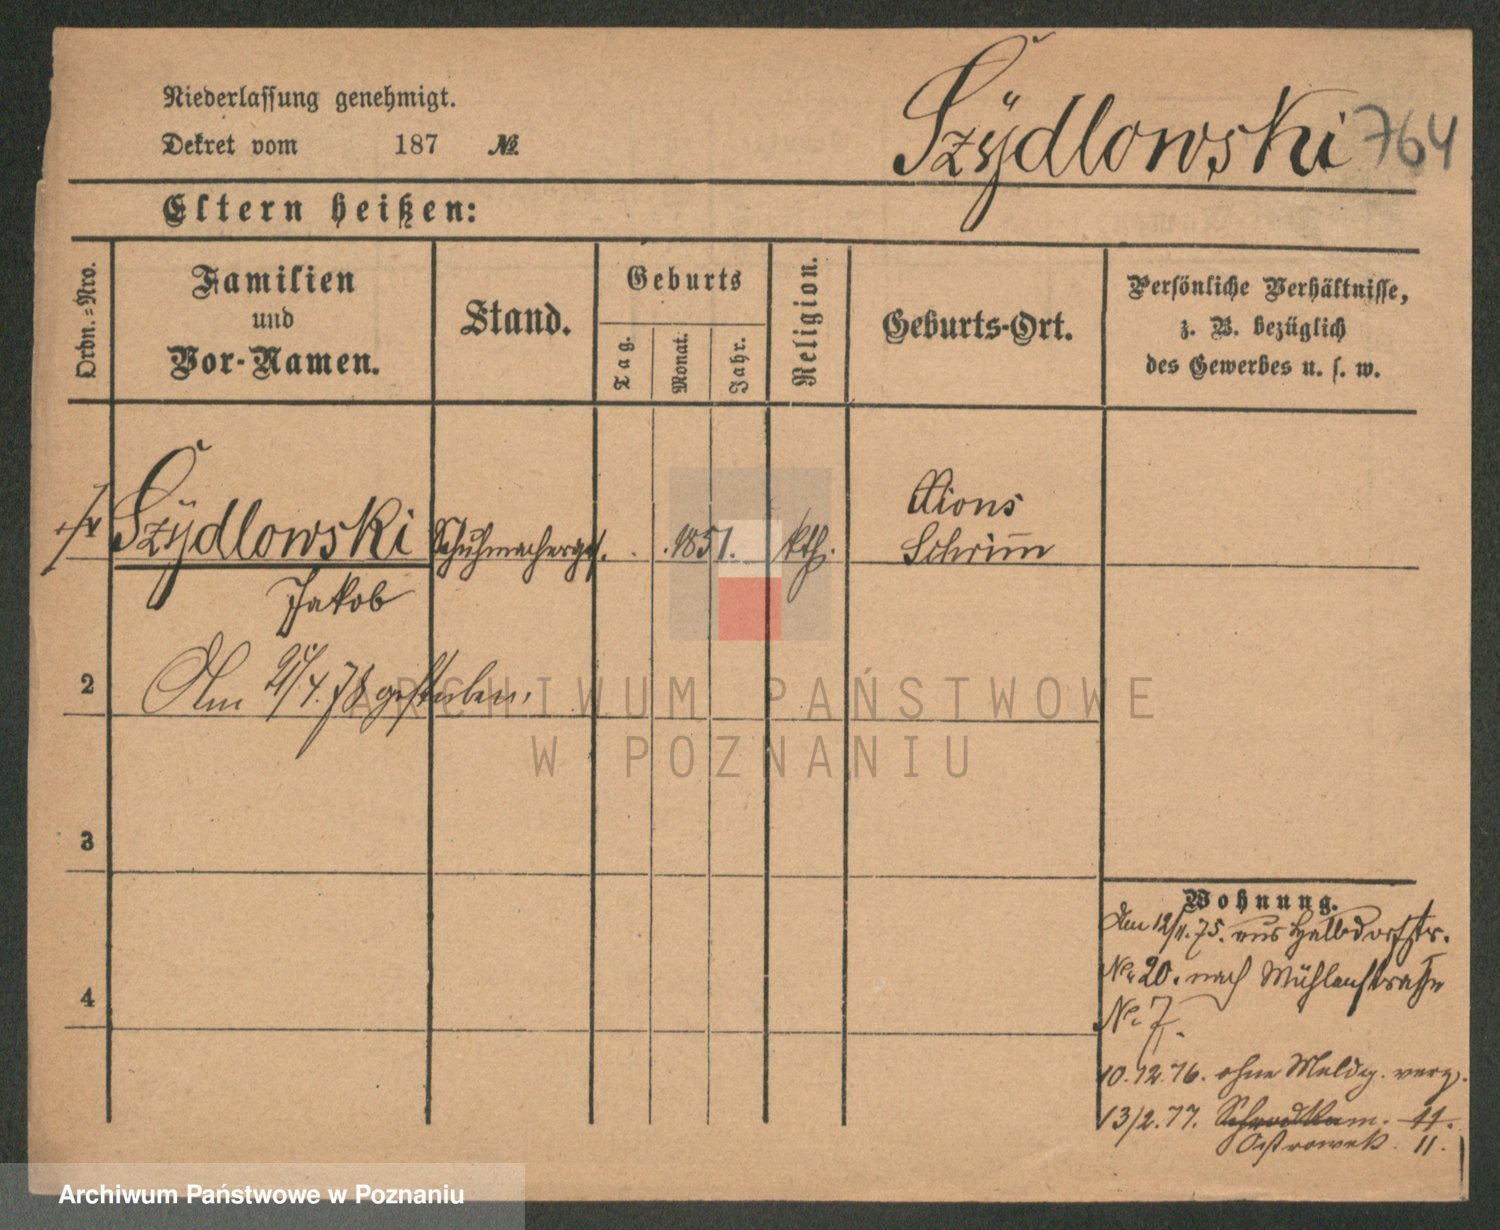 Niederlassung genehmigt.
Dekret vom 187 №
Szÿdlowski 764
Eltern heißen:
Ordn.-Nro.
Familien
und
Vor-Namen.
Stand.
Geburts
Tag.
Monat.
Jahr.
Religion.
Geburts-Ort.
Persönliche Verhältnisse,
z. B. bezüglich
des Gewerbes u. s. w.
Szÿdlowski Schuhmacherges. 1851. kth. Xions
Schrimm
Jakob
2
Am 4.78 gestorben.
3
4
Wohnung.
Am 12/11.75. aus Halbdorfstr.
No. 20. nach Mühlenstraße
No. 7.
10.12.76. ohne Meldg. verz.
13/2.77. Schrodkam. 11.
Ostrowek. 11.
ARCHIWUM PAŃSTWOWE
W POZNANIU
Archiwum Państwowe w Poznaniu